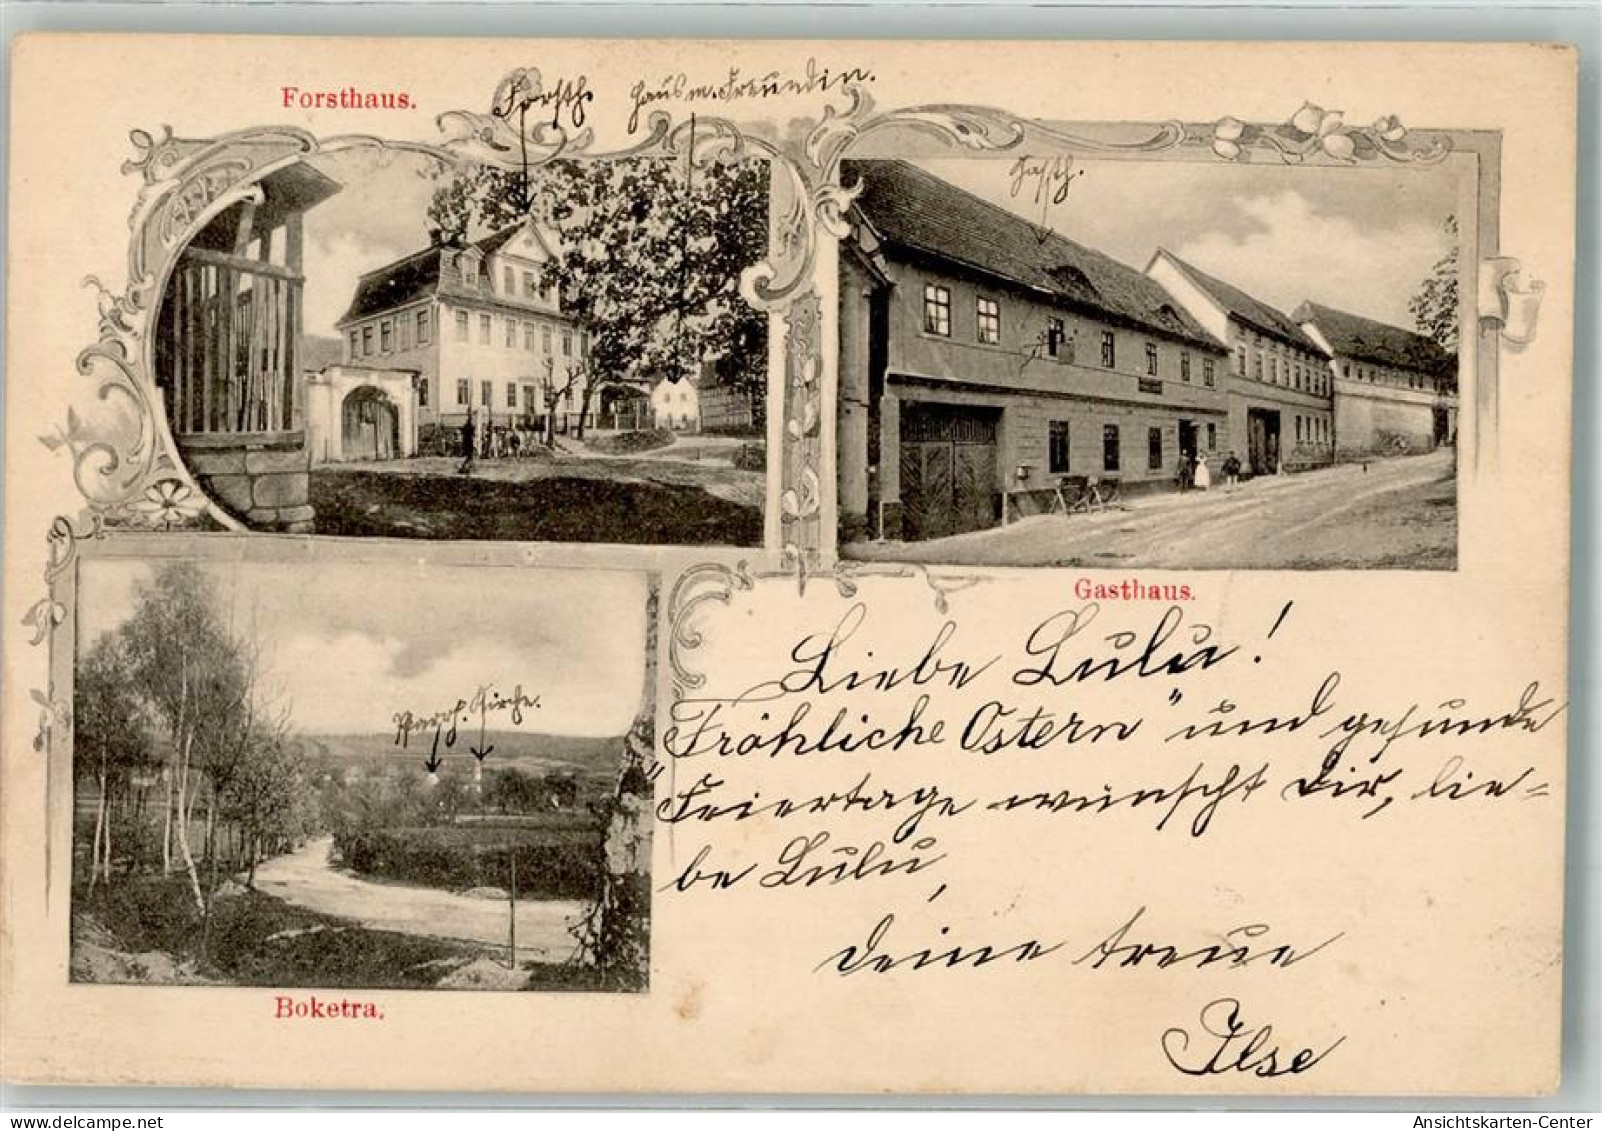 Forsthaus.
Forsth. Haus m. Freundin.
Gasth.
Gasthaus.
Pfarrh. Kirche.
Boketra.
Liebe Lulu!
"Fröhliche Ostern" und gesunde
Feiertage wünscht Dir, lie=
be Lulu,
Deine treue
Ilse
AnsichtsKarten-Center